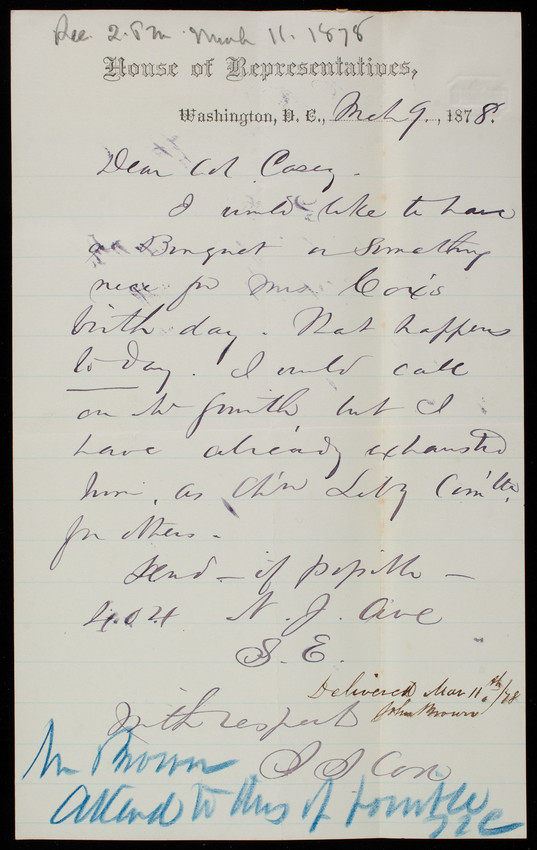 Rec. 2. P.m. March 11. 1878
House of Representatives,
Washington, D. C., Mch 9., 1878.
Dear Col. Casey.
I would like to have
a Bouquet or Something
nice for Mrs. Cox's
birth day. That happens
to day. I would call
on Mr Smith but I
have already exhausted
him, as Ch'n Liby Com'tte,
for others.
Send - if possible -
404 N. J. Ave
S. E.
Delivered Mar 11th/78
John Brown
With respect
S S Cox
Mr Brown
Attend to this if possible
TLC